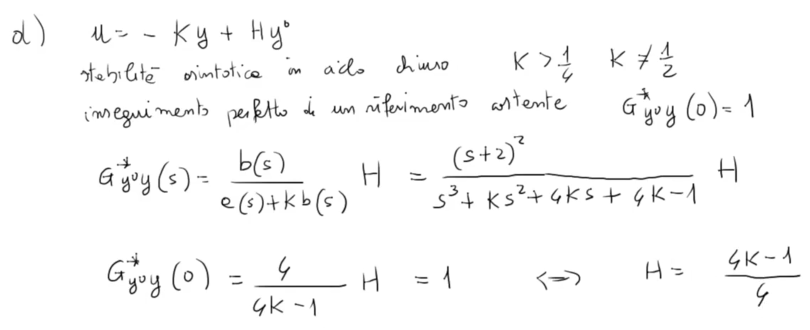 d) u = - Ky + Hy°
stabilità asintotica in ciclo chiuso K > 1/4 K ≠ 1/2
inseguimento perfetto di un riferimento costante G*y°y (0) = 1
G*y°y (s) = b(s) / (a(s) + Kb(s)) H = (s+2)² / (s³ + Ks² + 4Ks + 4K-1) H
G*y°y (0) = 4 / (4K-1) H = 1 <=> H = (4K-1) / 4